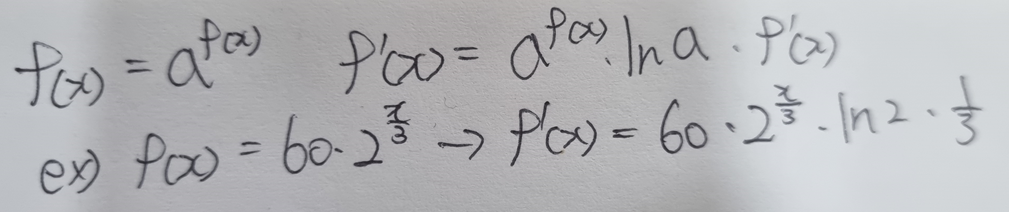 f(x) = a^{f(x)} f'(x) = a^{f(x)} · ln a · f'(x)
ex) f(x) = 60 · 2^{x/3} → f'(x) = 60 · 2^{x/3} · ln 2 · 1/3